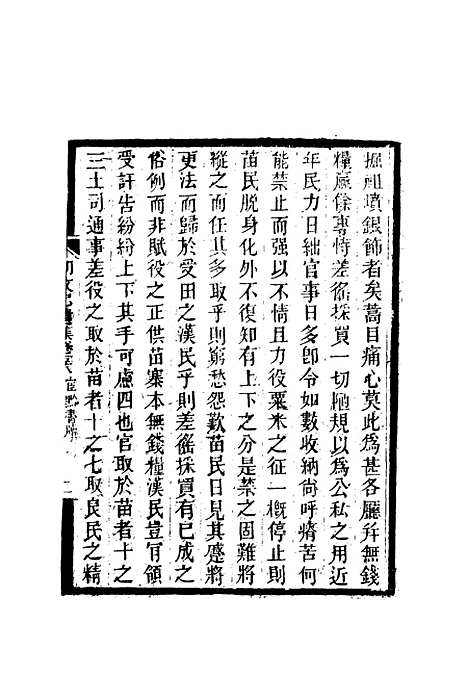 掘祖墳銀飾者矣蒿目痛心莫此爲甚各屬并無錢
糧羸餘專恃差徭採買一切陋規以爲公私之用近
年民力日絀官事日多卽令如數收納尙呼瘠苦何
能禁止而强以不情且力役粟米之征一槪停止則
苗民脫身化外不復知有上下之分是禁之固難將
縱之而任其多取乎則窮愁怨歎苗民日見其蹙將
更法而歸於受田之漢民乎則差徭採買有已成之
俗例而非賦役之正供苗寨本無錢糧漢民豈肎領
受訐告紛紛上下其手可慮四也官取於苗者十之
三土司通事差役之取於苗者十之七取良民之精